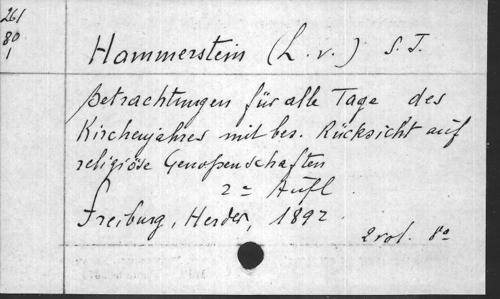 261
80
1
Hammerstein (L. v.) S. J.
Betrachtungen für alle Tage des
Kirchenjahres mit bes. Rücksicht auf
religiöse Genoßenschaften
2e Aufl
Freiburg, Herder, 1892.
2 vol. 8o